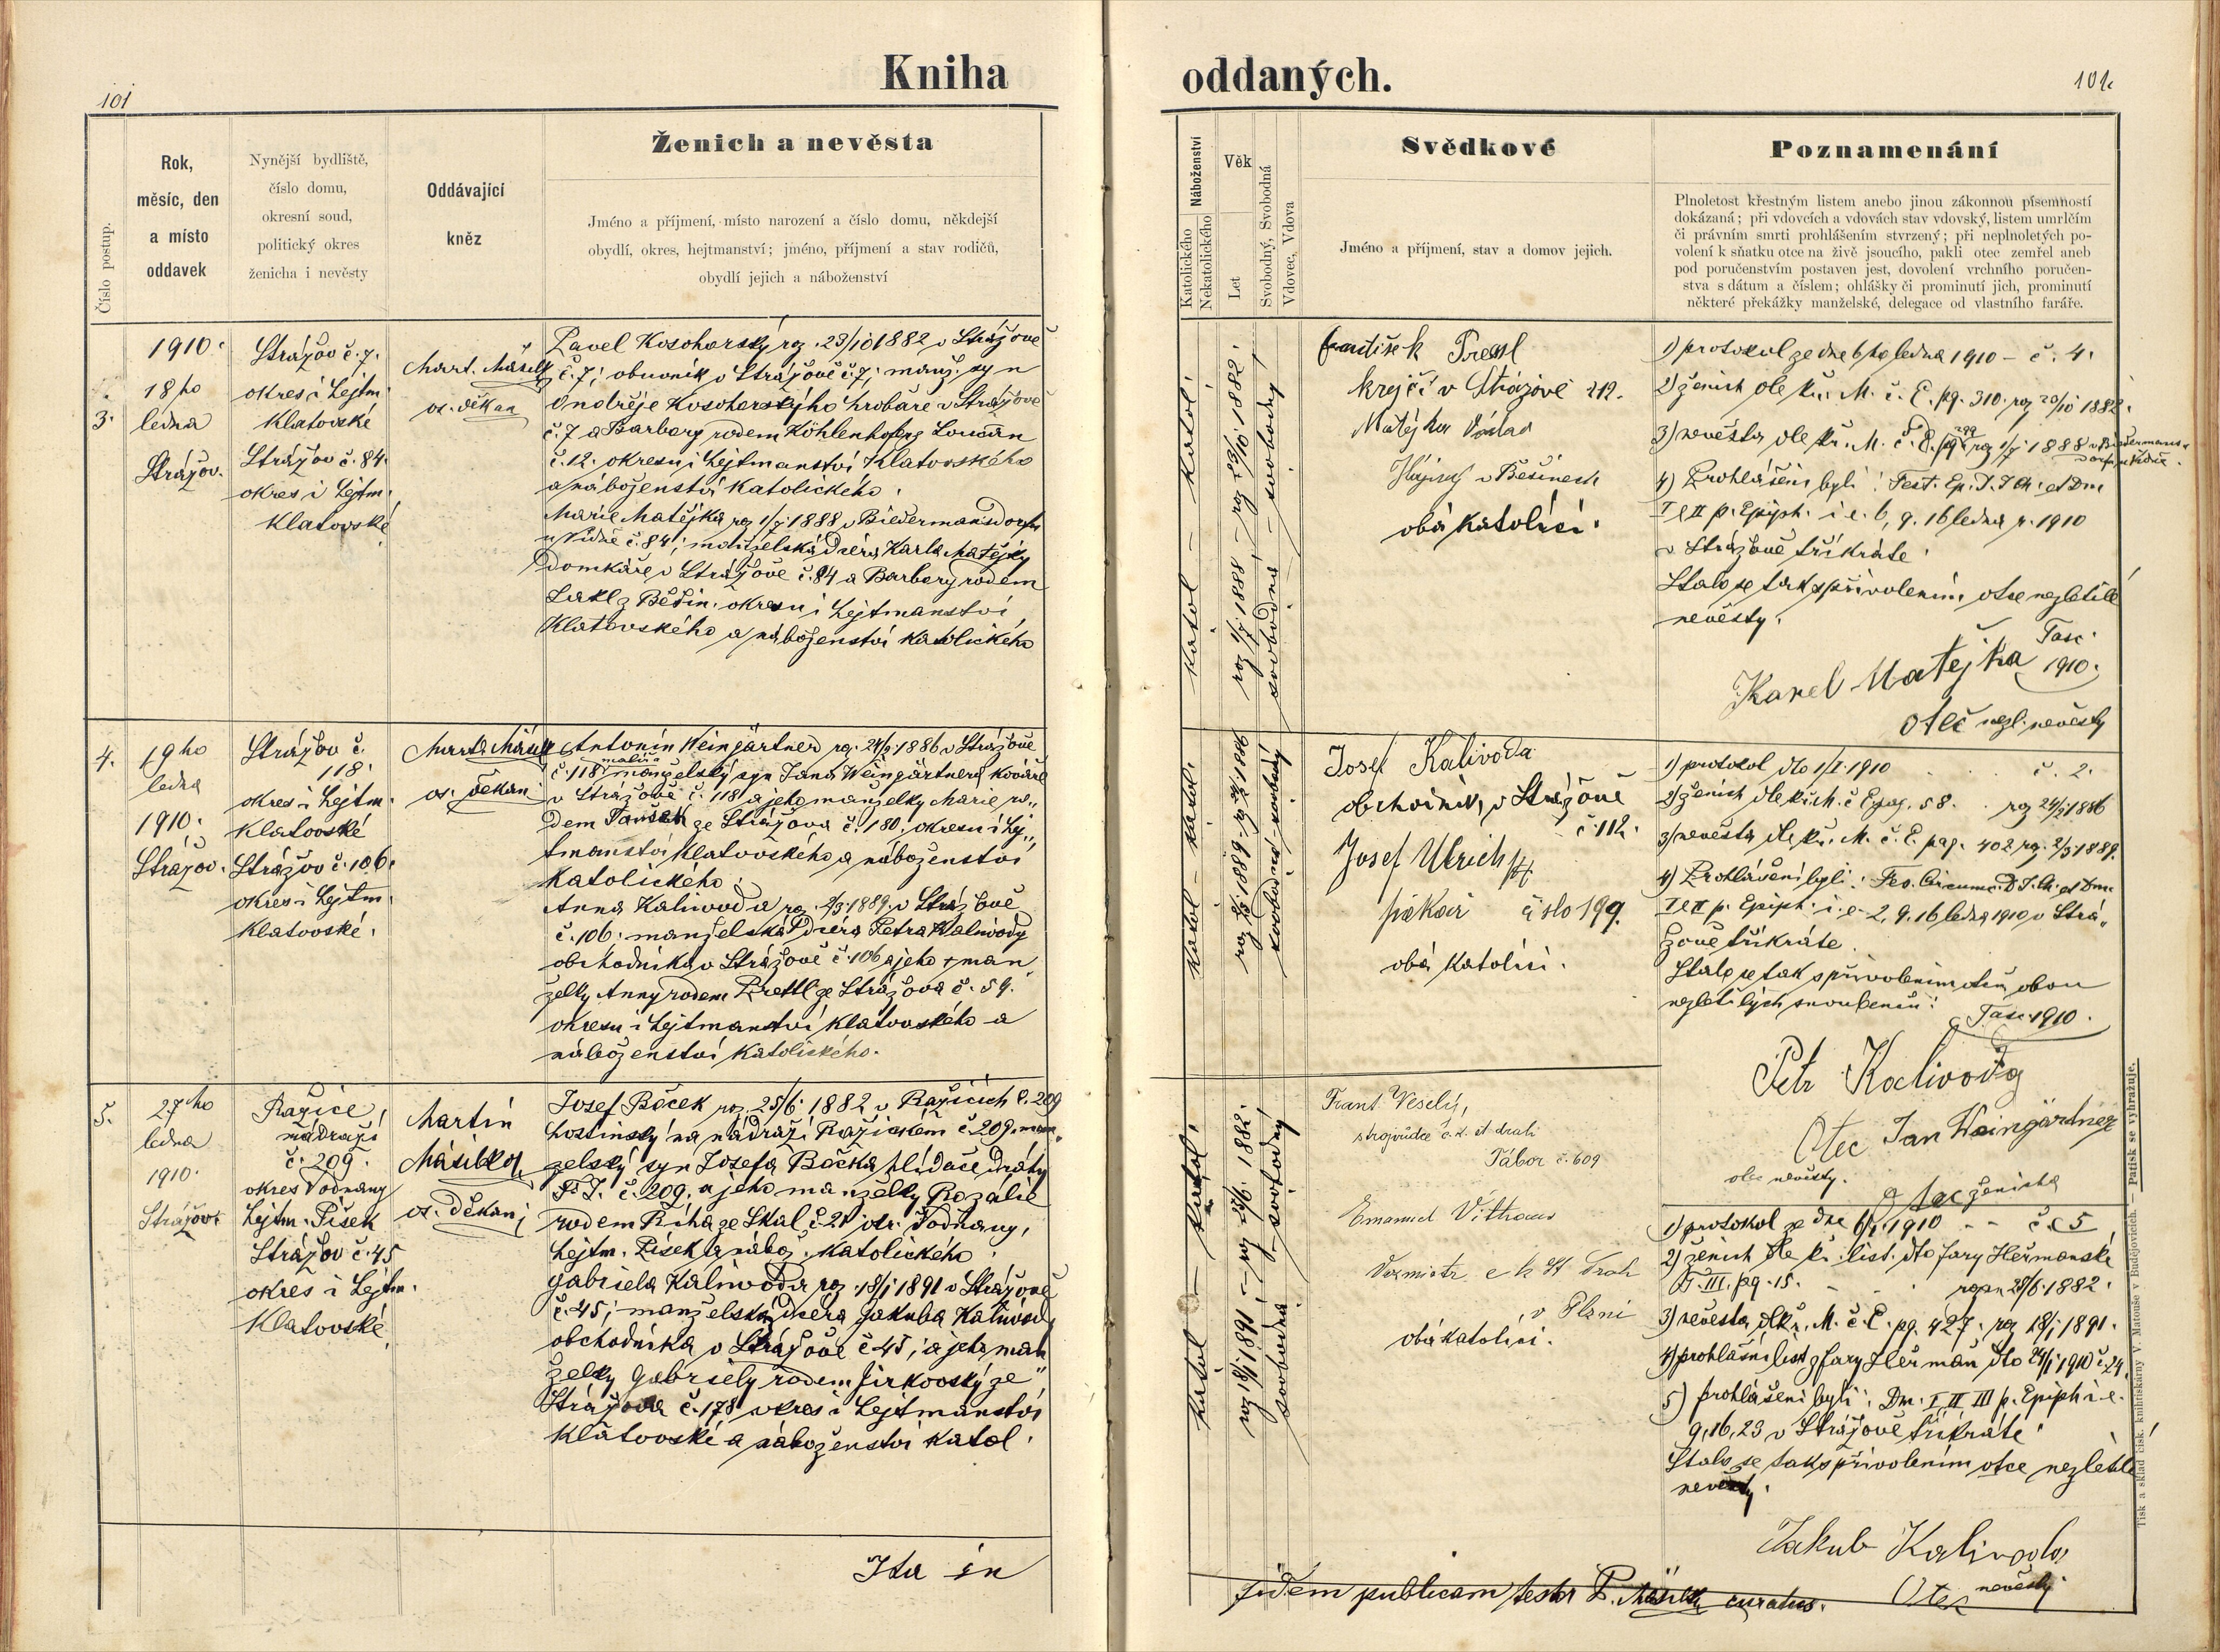 101
Kniha
oddaných.
Číslo postup.
Rok,
měsíc, den
a místo
oddavek
Nynější bydliště,
číslo domu,
okresní soud,
politický okres
ženicha i nevěsty
Oddávající
kněz
Ženich a nevěsta
Jméno a příjmení, místo narození a číslo domu, někdejší
obydlí, okres, hejtmanství; jméno, příjmení a stav rodičů,
obydlí jejich a náboženství
Náboženství
Katolického
Nekatolického
Věk
Let
Svobodný, Svobodná
Vdovec, Vdova
Svědkové
Jméno a příjmení, stav a domov jejich.
Poznamenání
Plnoletost křestným listem anebo jinou zákonnou písemností
dokázaná; při vdovcích a vdovách stav vdovský, listem umrlčím
či právním smrti prohlášením stvrzený; při neplnoletých po-
volení k sňatku otce na živě jsoucího, pakli otec zemřel aneb
pod poručenstvím postaven jest, dovolení vrchního poručen-
stva s dátum a číslem; ohlášky či prominutí jich, prominutí
některé překážky manželské, delegace od vlastního faráře.
3.
1910.
18ho
ledna
Strážov.
Strážov č. 7.
okres i hejtm.
Klatovské
Strážov č. 84.
okres i hejtm.
Klatovské
Mart. Mašek
os. děkan
Pavel Kosohorský roz. 23/10 1882 v Strážově
č. 7, obuvník v Strážově č. 7, manž. syn
Ondřeje Kosohorského hrobáře v Strážově
č. 7 a Barbory rodem Köhlenhofer z
č. 12. okresu i hejtmanství Klatovského
a náboženství katolického.
Marie Matějka roz 1/7 1888 v Biedermansdorfu
u Vídně č. 84; manželská dcera Karla Matějky
domkáře v Strážově č. 84 a Barbory rodem
z Běšin. okresu i hejtmanství
Klatovského a náboženství katolického
katol. – katol.
roz 1/7 1888 – roz 23/10. 1882.
svobodná – svobodný
František
krejčí v Strážově 212.
Matějka Václav
v Běšinech
oba katolíci.
1) protokol ze dne 6ho ledna 1910 – č. 4.
2) ženich dle kř. M. č. E. pg. 310. roz 23/10 1882.
3) nevěsta dle kř. M. roz 1/7 1888
4) Prohlášeni byli: Fest. Ep. D. J. Ch. et Dmi
I et II p. Epiph. i. e. 6, 9. 16 ledna r. 1910
v Strážově tříkráte.
Stalo se tak s přivolením otce nezletilé
nevěsty.
Karel Matějka
1910.
otec nezl. nevěsty
4.
19ho
ledna
1910.
Strážov.
Strážov č.
118.
okres i hejtm.
Klatovské
Strážov č. 106.
okres i hejtm.
Klatovské.
os. děkan
Antonín Weingärtner roz. 24/2 1886 v Strážově
č. 118 manželský syn Jana Weingärtnera kováře
v Strážově č. 118 a jeho manželky Marie ro„
dem ze Strážova č. 180. okresu i hej„
tmanství Klatovského a náboženství
katolického.
Anna Kalivoda roz. 2/3 1889. v Strážově
č. 106. manželská dcera Petra Kalivody
obchodníka v Strážově č. 106 a jeho † man
želky Anny rodem Prettl ze Strážova č. 59.
okresu i hejtmanství Klatovského a
náboženství katolického.
katol – katol.
roz 2/3 1889. roz 24/2 1886
svobodná – svobodný
Josef Kalivoda
obchodník, v Strážově
č. 112.
Josef Ulrich
pekař číslo 199.
oba katolíci.
1) protokol dto 1/I. 1910 č. 2.
2) ženich dle kř. M. č. E pag. 58. roz 24/2 1886
3) nevěsta dle kř. M. č. E. pag. 402 roz. 2/3 1889.
4) Prohlášeni byli: Fes. Circumc. D. J. Ch. et Dmi
I et II p. Epiph. i. e. 2, 9. 16 ledna 1910 v Strá„
žově tříkráte.
Stalo se tak s přivolením otců obou
nezletilých snoubenců.
1910.
Petr Kalivoda
otec nevěsty.
Otec Jan Weingärtner
otec ženicha
5.
27ho
ledna
1910.
Strážov
Ražice,
nádraží
č. 209.
okres Vodňany
hejtm. Písek
Strážov č. 45
okres i hejtm.
Klatovské
Martin
os. děkan
Josef Böček roz. 25/6. 1882 v Ražicích č. 209
hostinský na nádraží Ražickém č. 209. man„
želský syn Josefa Böčka hlídače dráhy
č. 209. a jeho manželky Rozálie
rodem Říha ze Skal č. 21 okr. Vodňany,
hejtm. Písek a nábož. katolického.
Gabriela Kalivoda roz. 18/1 1891 v Strážově
č. 45; manželská dcera Jakuba Kalivody
obchodníka v Strážově č. 45, a jeho man
želky Gabriely rodem Jirkovský ze
Strážova č. 178 okres i hejtmanství
Klatovské a náboženství katol.
katol – katol.
roz 18/1 1891 – roz 25/6. 1882.
svobodná – svobodný
Frant Veselý,
strojvůdce c. k. st drah
Tábor č. 609
Emanuel
v Plzni
oba katolíci.
1) protokol ze dne 6/1. 1910 – č. 5
2) ženich dle kř. list. dto fary Heřmanské
III. pg. 15. 25/6. 1882.
3) nevěsta dle kř. M. č. E. pg. 427. roz 18/1 1891.
4) prohlášní list z fary Heřmaň dto 24/1 1910 č. 24.
5) Prohlášeni byli: Dm. I, II III p. Epiph i. e.
9, 16, 23 v Strážově tříkráte
Stalo se tak s přivolením otce nezletilé
nevěsty.
Jakub Kalivoda
Otec nevěsty
Ita in
fidem publicam testor curatus.
Tisk a sklad čisk. knihtiskárny V. Matouše v Budějovicích. — Patisk se vyhražuje.